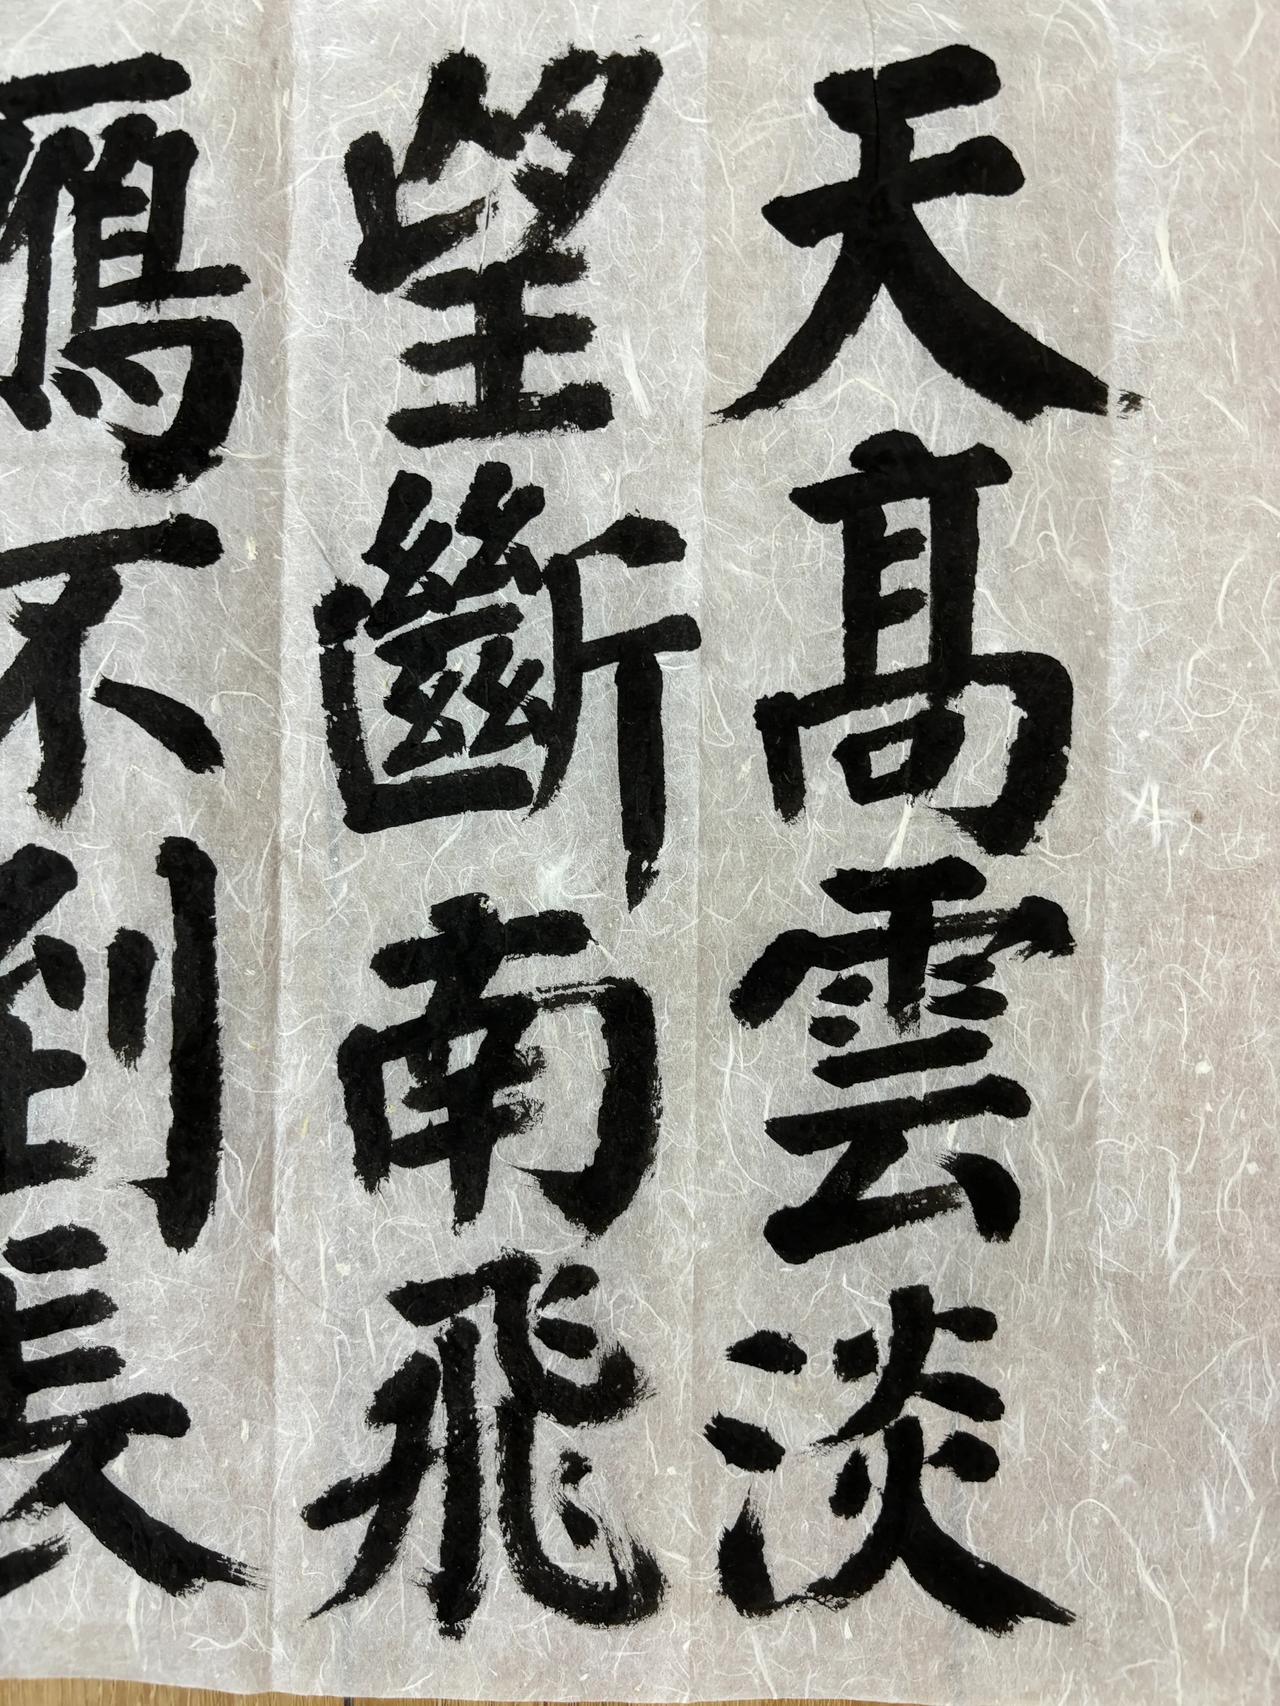 天高雲淡
望斷南飛
鴈不到長